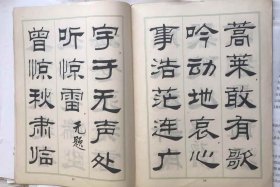 蒿莱敢有歌
吟动地哀心
事浩茫连广
宇于无声处
听惊雷 无题
曾惊秋肃临